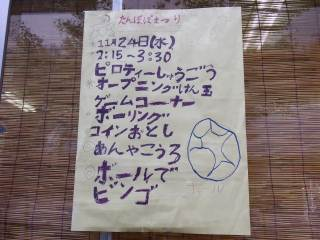 たんぽぽまつり
11月24日(水)
2:15～3:30
ピロティーしゅうごう
オープニングけん玉
ゲームコーナー
ボーリング
コインおとし
あんやこうろ
ボールで
ビンゴ